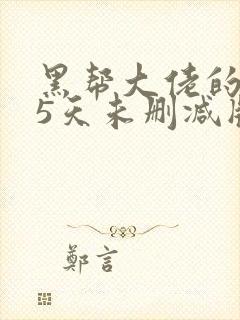 黑帮大佬的
5天未删减
鄭言